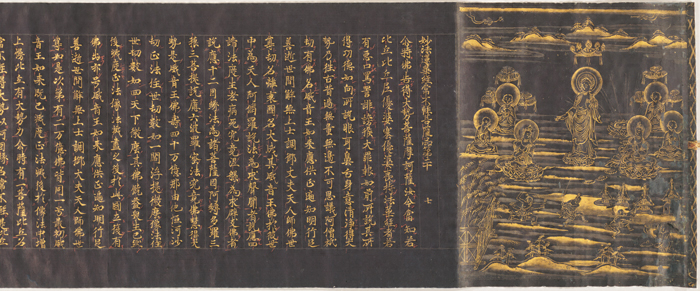 妙法蓮華經常不輕菩薩品第二十　七
尒時佛告得大勢菩薩摩訶薩汝今當知若
比丘比丘尼優婆塞優婆夷持法華經者若
有惡口罵詈誹謗獲大罪報如前所說其所
得功德如向所說眼耳鼻舌身意清淨得大
勢乃往古昔過無量無邊不可思議阿僧祇
劫有佛名威音王如來應供正遍知明行足
善逝世間解無上士調御丈夫天人師佛世
尊劫名離衰國名大成其威音王佛於彼世
中為天人阿修羅說法為求聲聞者說應四
諦法度生老病死究竟涅槃為求辟支佛者
說應十二因緣法為諸菩薩因阿耨多羅三
藐三菩提說應六波羅蜜法究竟佛慧得大
勢是威音王佛壽四十萬億那由他恒河沙
劫正法住世劫數如一閻浮提微塵像法住
世劫數如四天下微塵其佛饒益眾生已然
後滅度正法像法滅盡之後於此國土復有
佛出亦號威音王如來應供正遍知明行足
善逝世間解無上士調御丈夫天人師佛世
尊如是次第有二萬億佛皆同一號最初威
音王如來既已滅度正法滅後於像法中增
上慢比丘有大勢力尒時有一菩薩比丘名
常不輕得大勢以何因緣名常不輕是比丘